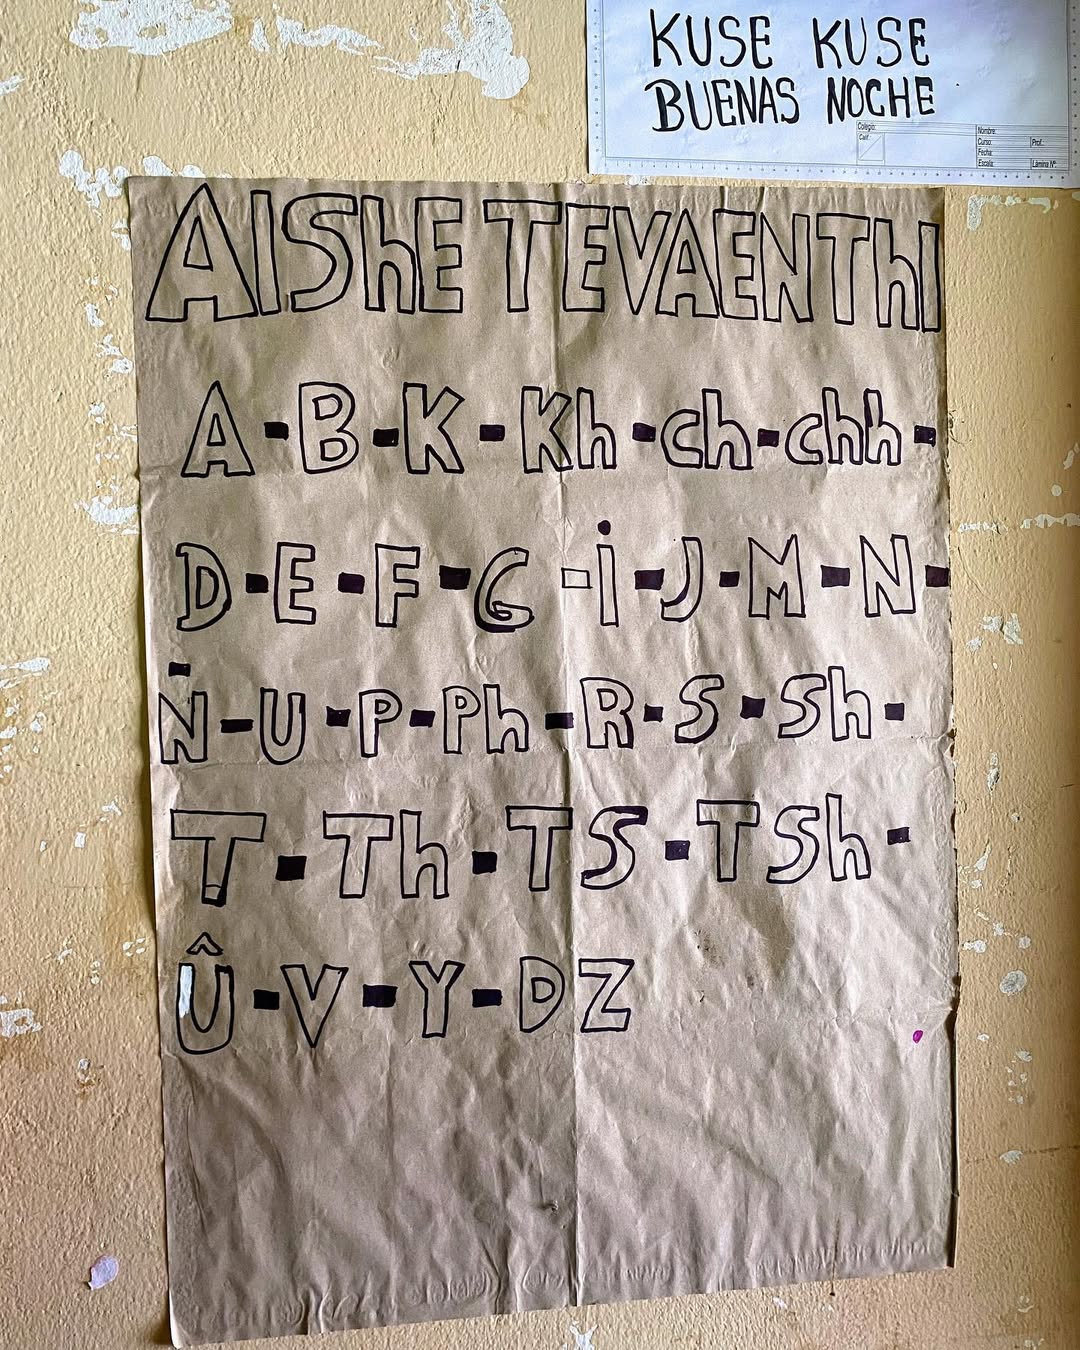 KUSE KUSE
BUENAS NOCHE
Colegio:
Calif.:
Nombre:
Curso:
Prof.:
Fecha:
Escala:
Lámina Nº:
AIShE TEVAENThI
A-B-K-Kh-ch-chh-
D-E-F-G-i-J-M-N-
Ñ-U-P-Ph-R-S-Sh-
T-Th-TS-TSh-
Û-V-Y-DZ